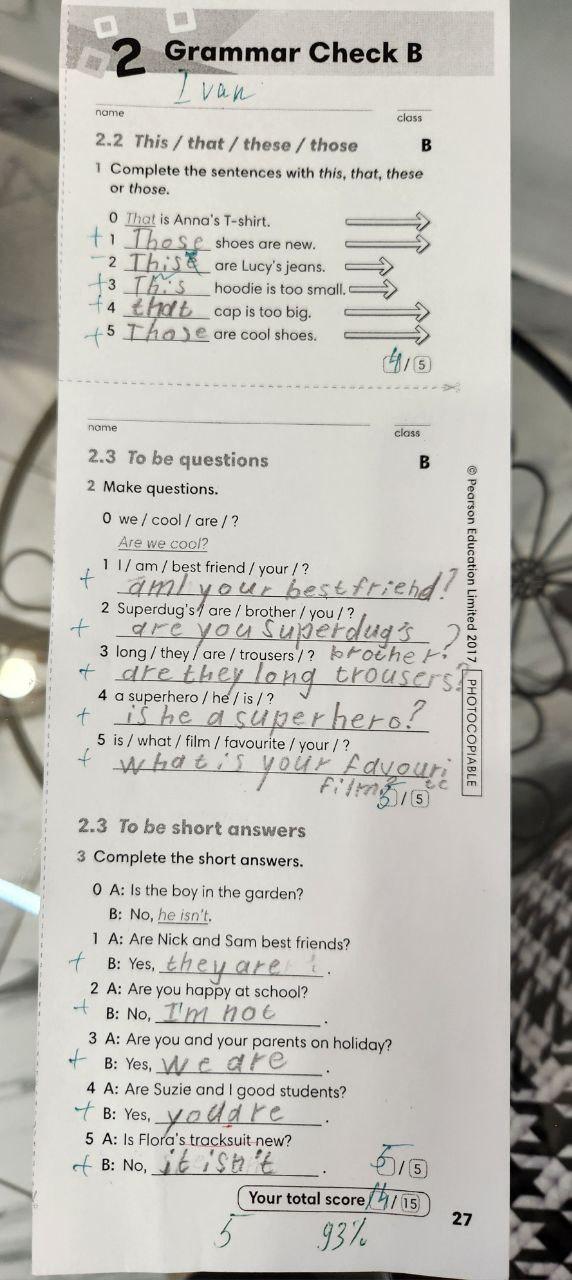 2 Grammar Check B
Ivan
name
class
2.2 This / that / these / those B
1 Complete the sentences with this, that, these
or those.
0 That is Anna's T-shirt.
+ 1 Those shoes are new.
- 2 This are Lucy's jeans.
+ 3 This hoodie is too small.
+ 4 that cap is too big.
+ 5 Those are cool shoes.
4/5
name
class
2.3 To be questions B
2 Make questions.
0 we / cool / are / ?
Are we cool?
1 I / am / best friend / your / ?
+ amI your best friend?
2 Superdug's / are / brother / you / ?
+ are you Superdug's ?
3 long / they / are / trousers / ? brother.
+ are they long trousers?
4 a superhero / he / is / ?
+ is he a superhero?
5 is / what / film / favourite / your / ?
+ what is your favouri
film? te
5/5
© Pearson Education Limited 2017 PHOTOCOPIABLE
2.3 To be short answers
3 Complete the short answers.
0 A: Is the boy in the garden?
B: No, he isn't.
1 A: Are Nick and Sam best friends?
+ B: Yes, they are.
2 A: Are you happy at school?
+ B: No, I'm not.
3 A: Are you and your parents on holiday?
+ B: Yes, we are.
4 A: Are Suzie and I good students?
+ B: Yes, you are.
5 A: Is Flora's tracksuit new?
+ B: No, it isn't.
5/5
Your total score 14/15
27
5 93%